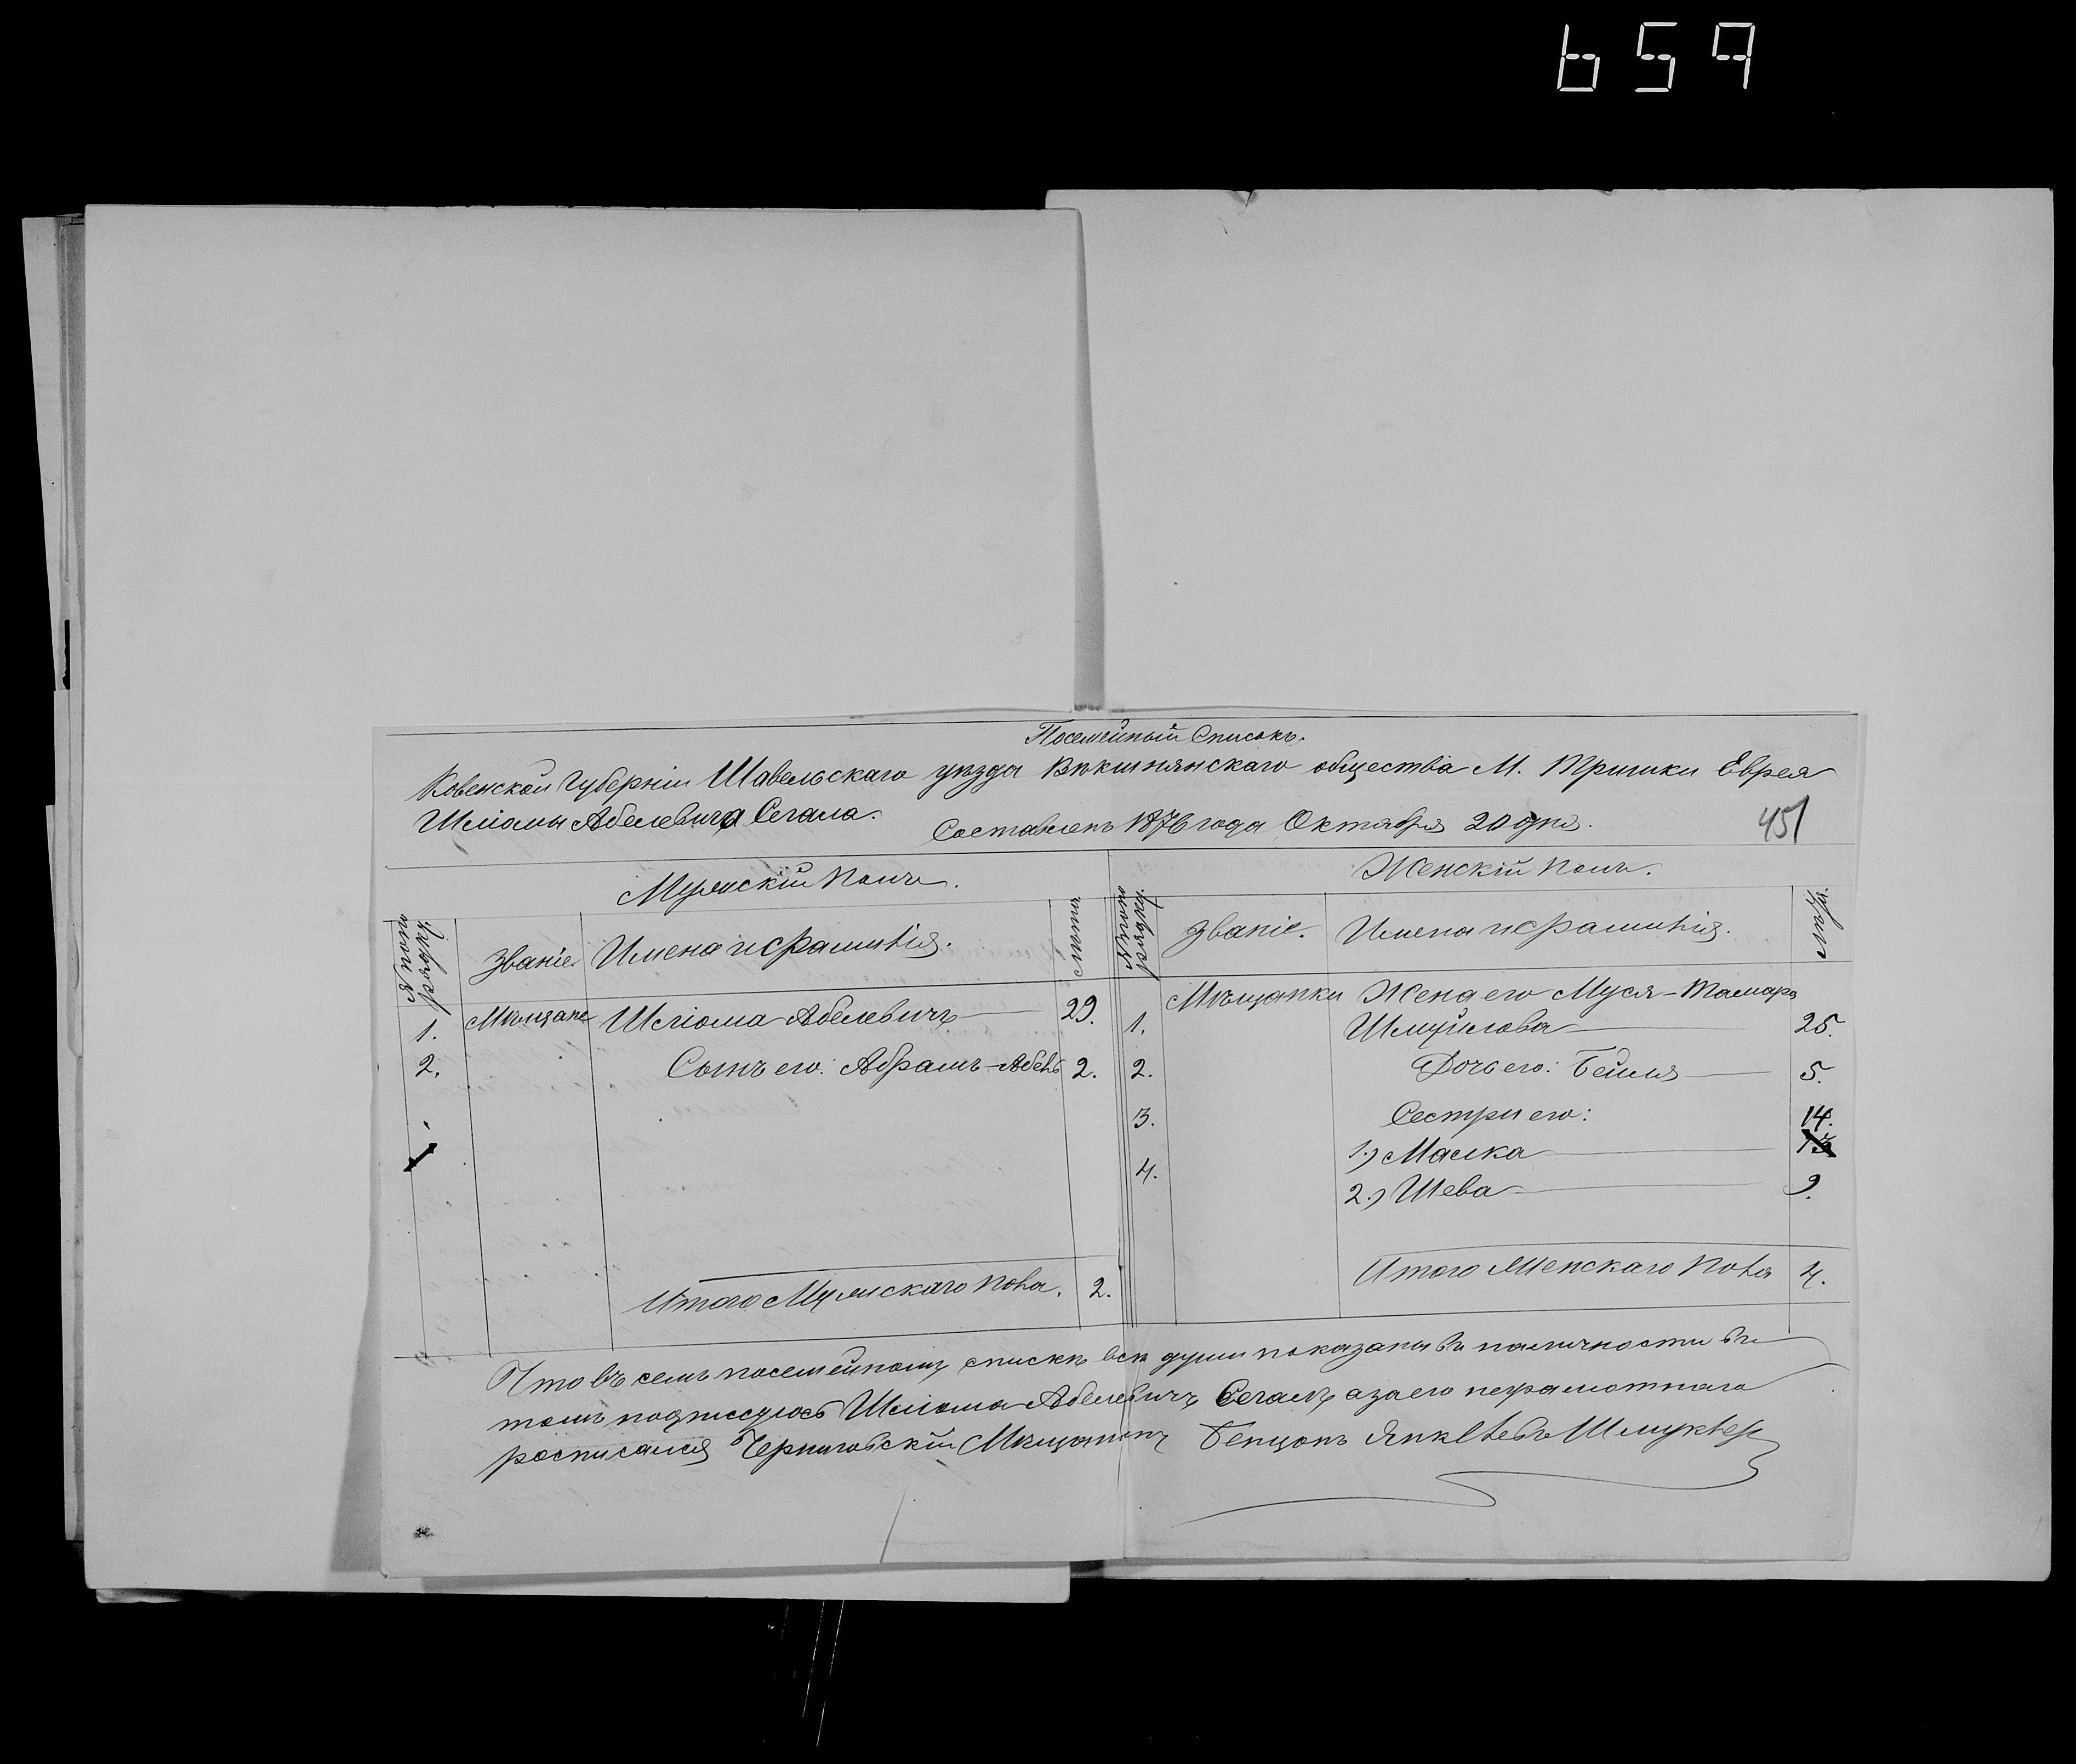 659
Посемейный Списокъ.
Ковенской Губерніи Шавельскаго уѣзда Векшнянскаго общества М. Тришки Еврея
Шліомы Абелевича Сегала. Составленъ 1876 года Октября 20 дня.
451
Мужскій Полъ.
Женскій Полъ.
№ по порядку. Званіе Имена и фамилія. Лѣта
№ по порядку. Званіе. Имена и фамилія. Лѣта.
1. Мѣщане Шліома Абелевичъ 29.
2. Сынъ его: Абрамъ-Абель 2.
Итого Мужскаго пола. 2.
Мѣщанки Жена его Муся-Тамара
1. Шмуйлова 25.
2. Дочь его: Бейля 5.
3. Сестри его: 14.
1.) Малка 13
4. 2.) Шева 9.
Итого Женскаго пола 4.
Что въ семъ посемейномъ спискѣ всѣ души показаны въ наличности въ
томъ подписуюсь Шліома Абелевичъ Сегалъ, а за его неграмотнаго
росписался Черниговскій Мѣщанинъ Бенцонъ